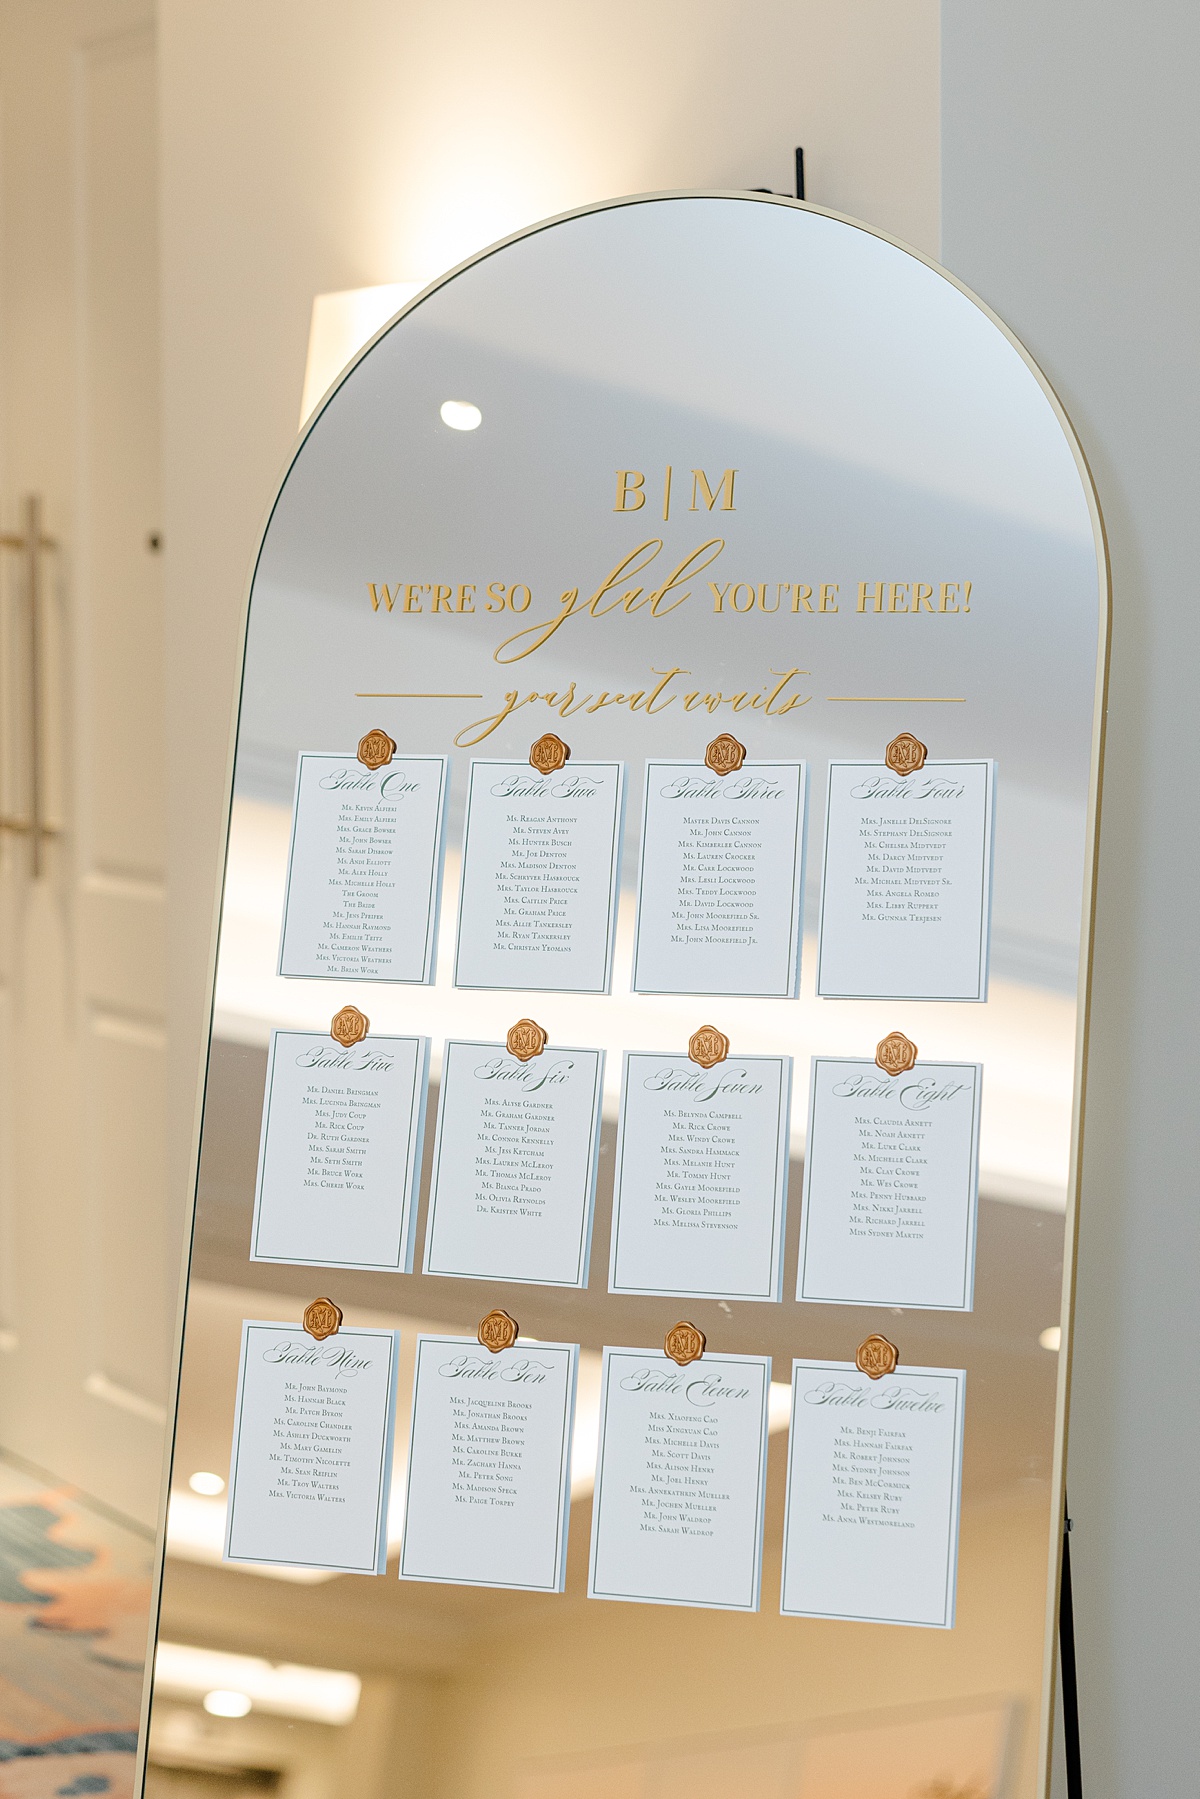 B | M
WE'RE SO glad YOU'RE HERE!
your seat awaits
Table One
Mr. Kevin Alfieri
Mrs. Emily Alfieri
Mrs. Grace Bowser
Mr. John Bowser
Ms. Sarah Disbrow
Ms. Andi Elliott
Mr. Alex Holly
Mrs. Michelle Holly
The Groom
The Bride
Mr. Jens Pfeifer
Ms. Hannah Raymond
Ms. Emilie Teitz
Mr. Cameron Weathers
Mrs. Victoria Weathers
Mr. Brian Work
Table Two
Ms. Reagan Anthony
Mr. Steven Avey
Ms. Hunter Busch
Mr. Joe Denton
Mrs. Madison Denton
Mr. Schryver Hasbrouck
Mrs. Taylor Hasbrouck
Mrs. Caitlin Price
Mr. Graham Price
Mrs. Allie Tankersley
Mr. Ryan Tankersley
Mr. Christan Yeomans
Table Three
Master Davis Cannon
Mr. John Cannon
Mrs. Kimberlee Cannon
Ms. Lauren Crocker
Mr. Carr Lockwood
Mrs. Lesli Lockwood
Mrs. Teddy Lockwood
Mr. David Lockwood
Mr. John Moorefield Sr.
Mrs. Lisa Moorefield
Mr. John Moorefield Jr.
Table Four
Mrs. Janelle DelSignore
Ms. Stephany DelSignore
Ms. Chelsea Midtvedt
Ms. Darcy Midtvedt
Mr. David Midtvedt
Mr. Michael Midtvedt Sr.
Mrs. Angela Romeo
Mrs. Libby Ruppert
Mr. Gunnar Terjesen
Table Five
Mr. Daniel Bringman
Mrs. Lucinda Bringman
Mrs. Judy Coup
Mr. Rick Coup
Dr. Ruth Gardner
Mrs. Sarah Smith
Mr. Seth Smith
Mr. Bruce Work
Mrs. Cherie Work
Table Six
Mrs. Alyse Gardner
Mr. Graham Gardner
Mr. Tanner Jordan
Mr. Connor Kennelly
Ms. Jess Ketcham
Mrs. Lauren McLeroy
Mr. Thomas McLeroy
Ms. Bianca Prado
Ms. Olivia Reynolds
Dr. Kristen White
Table Seven
Ms. Belynda Campbell
Mr. Rick Crowe
Mrs. Windy Crowe
Mrs. Sandra Hammack
Mrs. Melanie Hunt
Mr. Tommy Hunt
Mrs. Gayle Moorefield
Mr. Wesley Moorefield
Ms. Gloria Phillips
Mrs. Melissa Stevenson
Table Eight
Mrs. Claudia Arnett
Mr. Noah Arnett
Mr. Luke Clark
Ms. Michelle Clark
Mr. Clay Crowe
Mr. Wes Crowe
Mrs. Penny Hubbard
Mrs. Nikki Jarrell
Mr. Richard Jarrell
Miss Sydney Martin
Table Nine
Mr. John Baymond
Ms. Hannah Black
Mr. Patch Byron
Ms. Caroline Chandler
Ms. Ashley Duckworth
Ms. Mary Gamelin
Mr. Timothy Nicolette
Mr. Sean Reiflin
Mr. Troy Walters
Mrs. Victoria Walters
Table Ten
Mrs. Jacqueline Brooks
Mr. Jonathan Brooks
Mrs. Amanda Brown
Mr. Matthew Brown
Ms. Caroline Burke
Mr. Zachary Hanna
Mr. Peter Song
Ms. Madison Speck
Ms. Paige Torpey
Table Eleven
Mrs. Xiaofeng Cao
Miss Xingxuan Cao
Mrs. Michelle Davis
Mr. Scott Davis
Mrs. Alison Henry
Mr. Joel Henry
Mrs. Annekathrin Mueller
Mr. Jochen Mueller
Mr. John Waldrop
Mrs. Sarah Waldrop
Table Twelve
Mr. Benji Fairfax
Mrs. Hannah Fairfax
Mr. Robert Johnson
Mrs. Sydney Johnson
Mr. Ben McCormick
Mrs. Kelsey Ruby
Mr. Peter Ruby
Ms. Anna Westmoreland